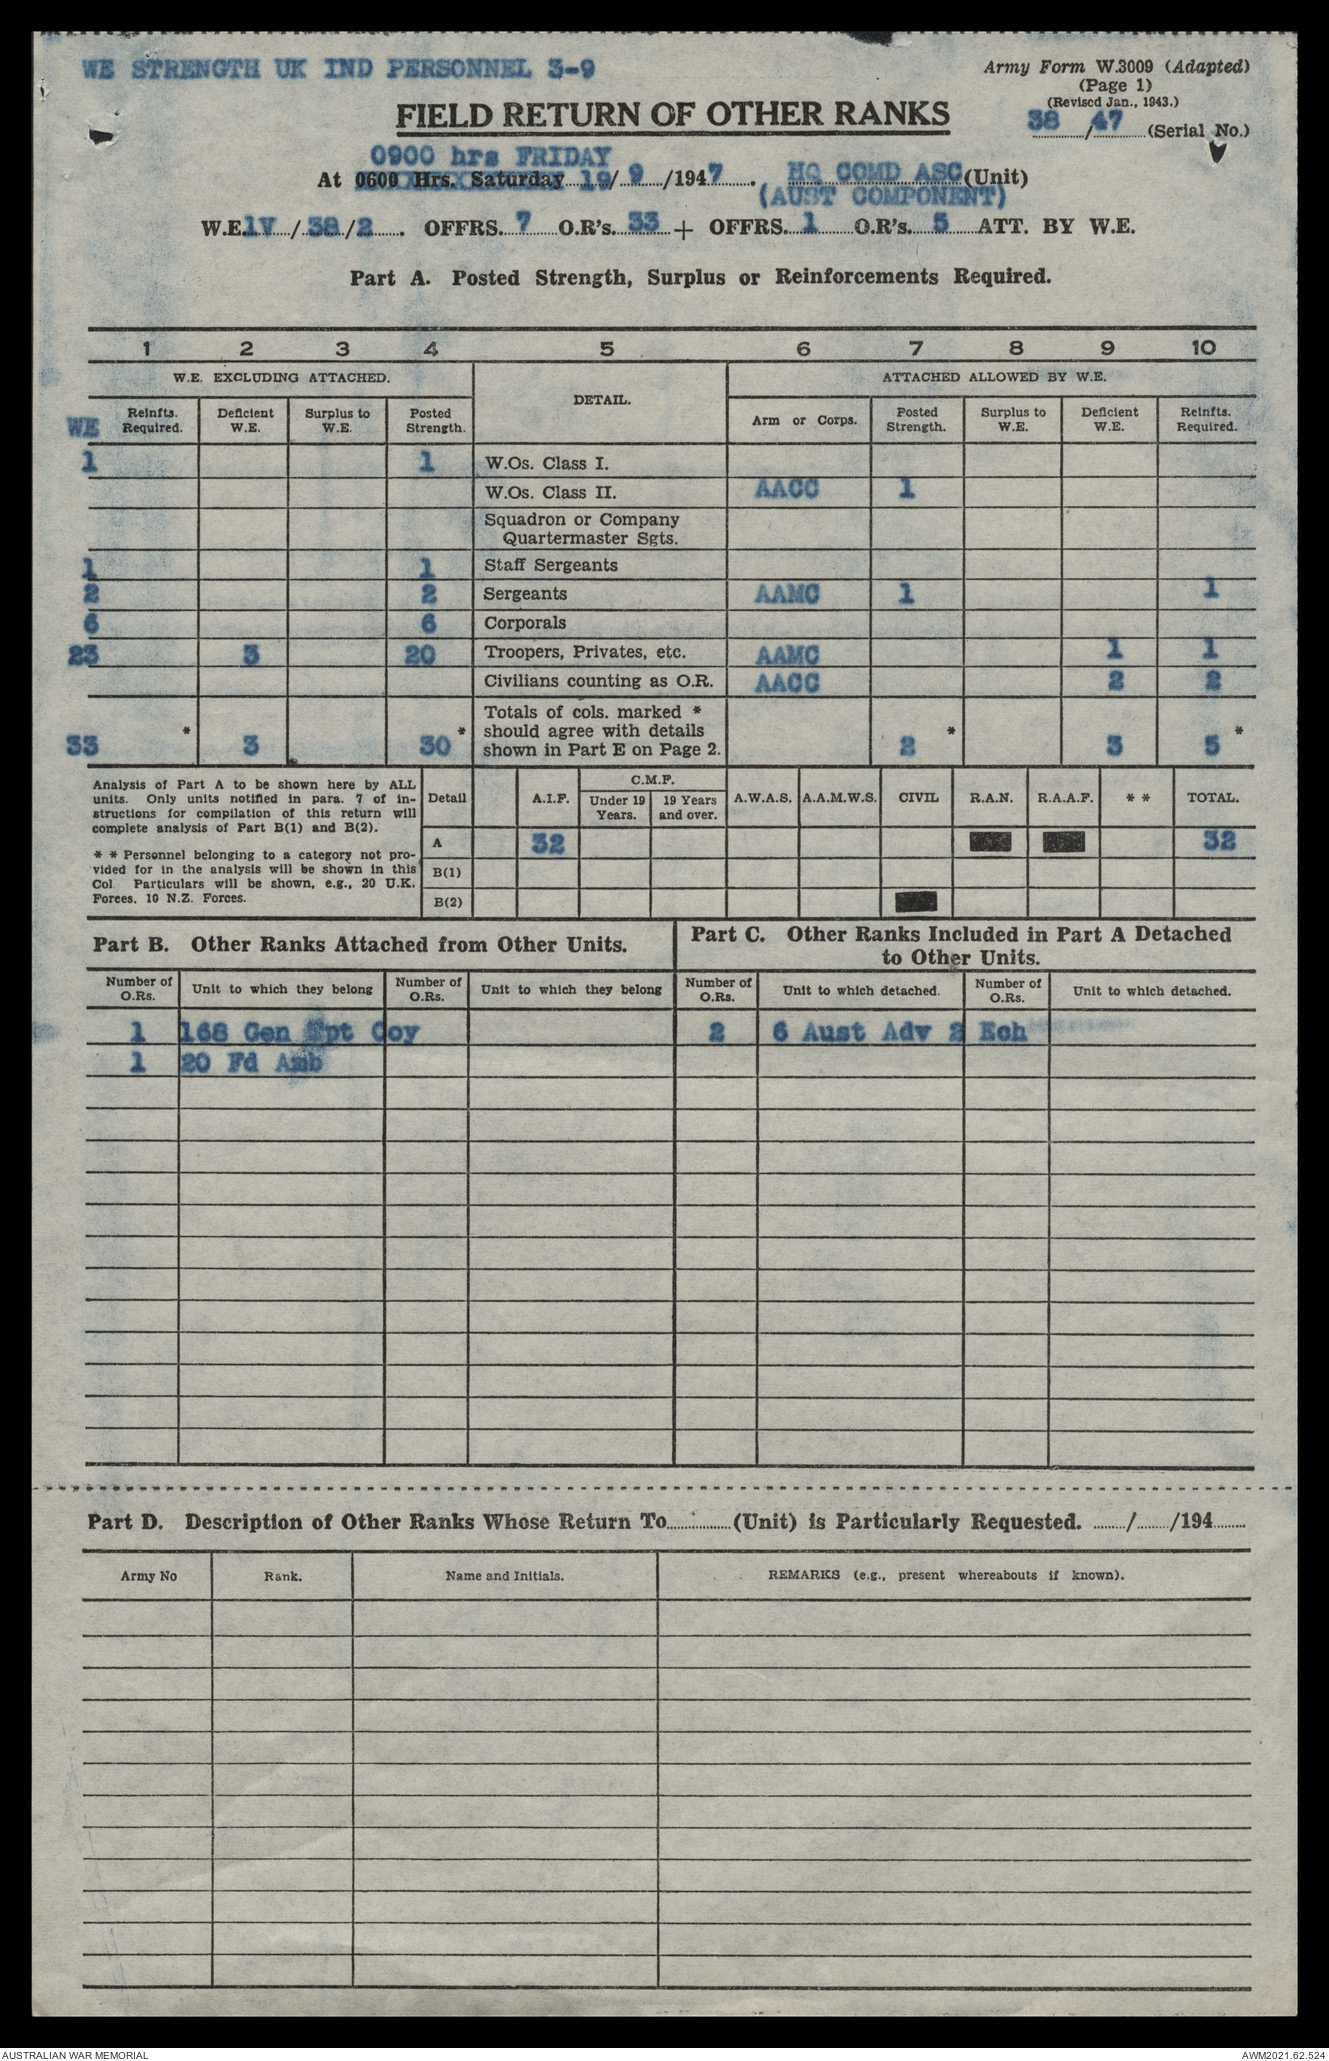 WE STRENGTH UK IND PERSONNEL 3-9
Army Form W.3009 (Adapted)
(Page 1)
(Revised Jan., 1943.)
FIELD RETURN OF OTHER RANKS
38 / 47 (Serial No.)
0900 hrs FRIDAY
At 0600 Hrs. Saturday 19 / 9 /1947. HQ COMD ASC (Unit)
(AUST COMPONENT)
W.E. 1V / 38 / 2. OFFRS. 7 O.R's. 33 + OFFRS. 1 O.R's. 5 ATT. BY W.E.
Part A. Posted Strength, Surplus or Reinforcements Required.
1 2 3 4 5 6 7 8 9 10
W.E. EXCLUDING ATTACHED. DETAIL. ATTACHED ALLOWED BY W.E.
WE Reinfts. Required. Deficient W.E. Surplus to W.E. Posted Strength. Arm or Corps. Posted Strength. Surplus to W.E. Deficient W.E. Reinfts. Required.
1 1 W.Os. Class I.
W.Os. Class II. AACC 1
Squadron or Company
Quartermaster Sgts.
1 1 Staff Sergeants
2 2 Sergeants AAMC 1 1
6 6 Corporals
23 3 20 Troopers, Privates, etc. AAMC 1 1
Civilians counting as O.R. AACC 2 2
Totals of cols. marked *
* * should agree with details * *
33 3 30 shown in Part E on Page 2. 2 3 5
Analysis of Part A to be shown here by ALL
units. Only units notified in para. 7 of in-
structions for compilation of this return will
complete analysis of Part B(1) and B(2).
* * Personnel belonging to a category not pro-
vided for in the analysis will be shown in this
Col Particulars will be shown, e.g., 20 U.K.
Forces, 10 N.Z. Forces.
C.M.F.
Detail A.I.F. Under 19 Years. 19 Years and over. A.W.A.S. A.A.M.W.S. CIVIL R.A.N. R.A.A.F. * * TOTAL.
A 32 32
B(1)
B(2)
Part B. Other Ranks Attached from Other Units.
Part C. Other Ranks Included in Part A Detached
to Other Units.
Number of O.Rs. Unit to which they belong Number of O.Rs. Unit to which they belong Number of O.Rs. Unit to which detached. Number of O.Rs. Unit to which detached.
1 168 Gen Tpt Coy 2 6 Aust Adv 2 Ech
1 20 Fd Amb
Part D. Description of Other Ranks Whose Return To (Unit) is Particularly Requested. / /194
Army No Rank. Name and Initials. REMARKS (e.g., present whereabouts if known).
AUSTRALIAN WAR MEMORIAL AWM2021.62.524